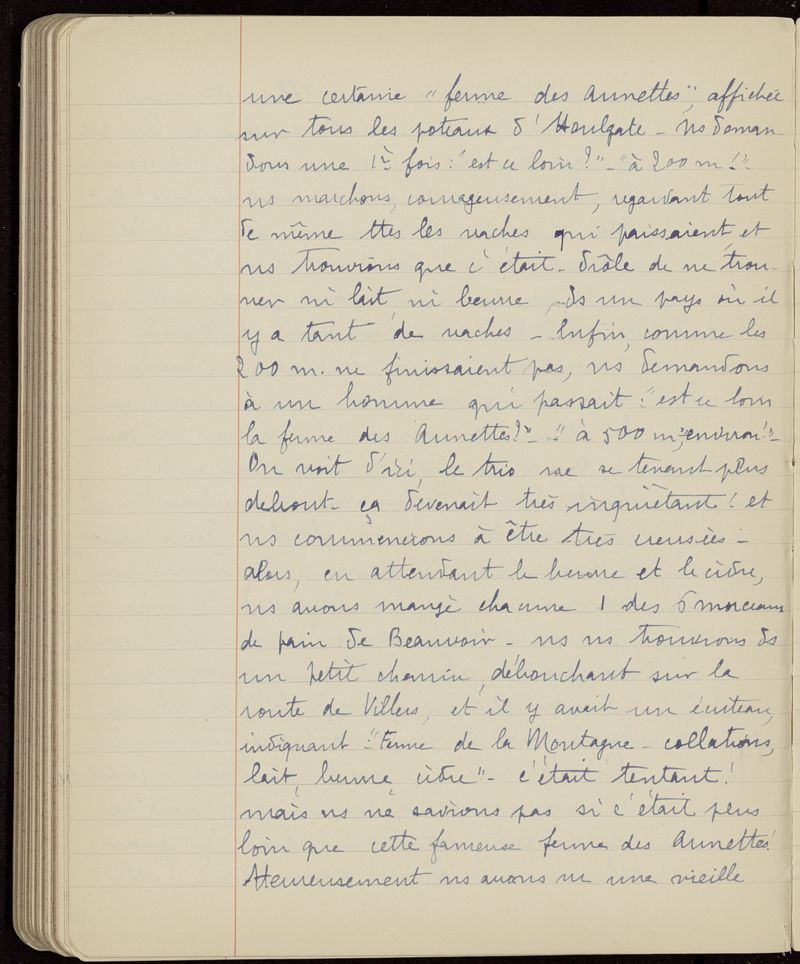 une certaine "ferme des Annettes", affichée
sur tous les poteaux d'Houlgate - Ns deman-
dons une 1re fois: "est ce loin?" - "à 200 m!".
ns marchons, courageusement, regardant tout
de même ttes les vaches qui paissaient, et
ns trouvions que c'était - drôle de ne trou-
ver ni lait, ni beurre, ds un pays où il
y a tant de vaches - Enfin, comme les
200 m. ne finissaient pas, ns demandons
à un homme qui passait: "est ce loin
la ferme des Annettes?" - "à 500 m, environ!" -
On voit d'ici, le trio ne se tenant plus
debout - ça devenait très inquiétant! et
ns commencions à être très creusées -
alors, en attendant le beurre et le cidre,
ns avons mangé chacune 1 des 6 morceaux
de pain de Beauvoir - ns ns trouvions ds
un petit chemin, débouchant sur la
route de Villers, et il y avait un écriteau,
indiquant: "Ferme de la Montagne - collations,
lait, beurre, cidre" - c'était tentant!
mais ns ne savions pas si c'était plus
loin que cette fameuse ferme des Annettes!
Heureusement ns avons vu une vieille